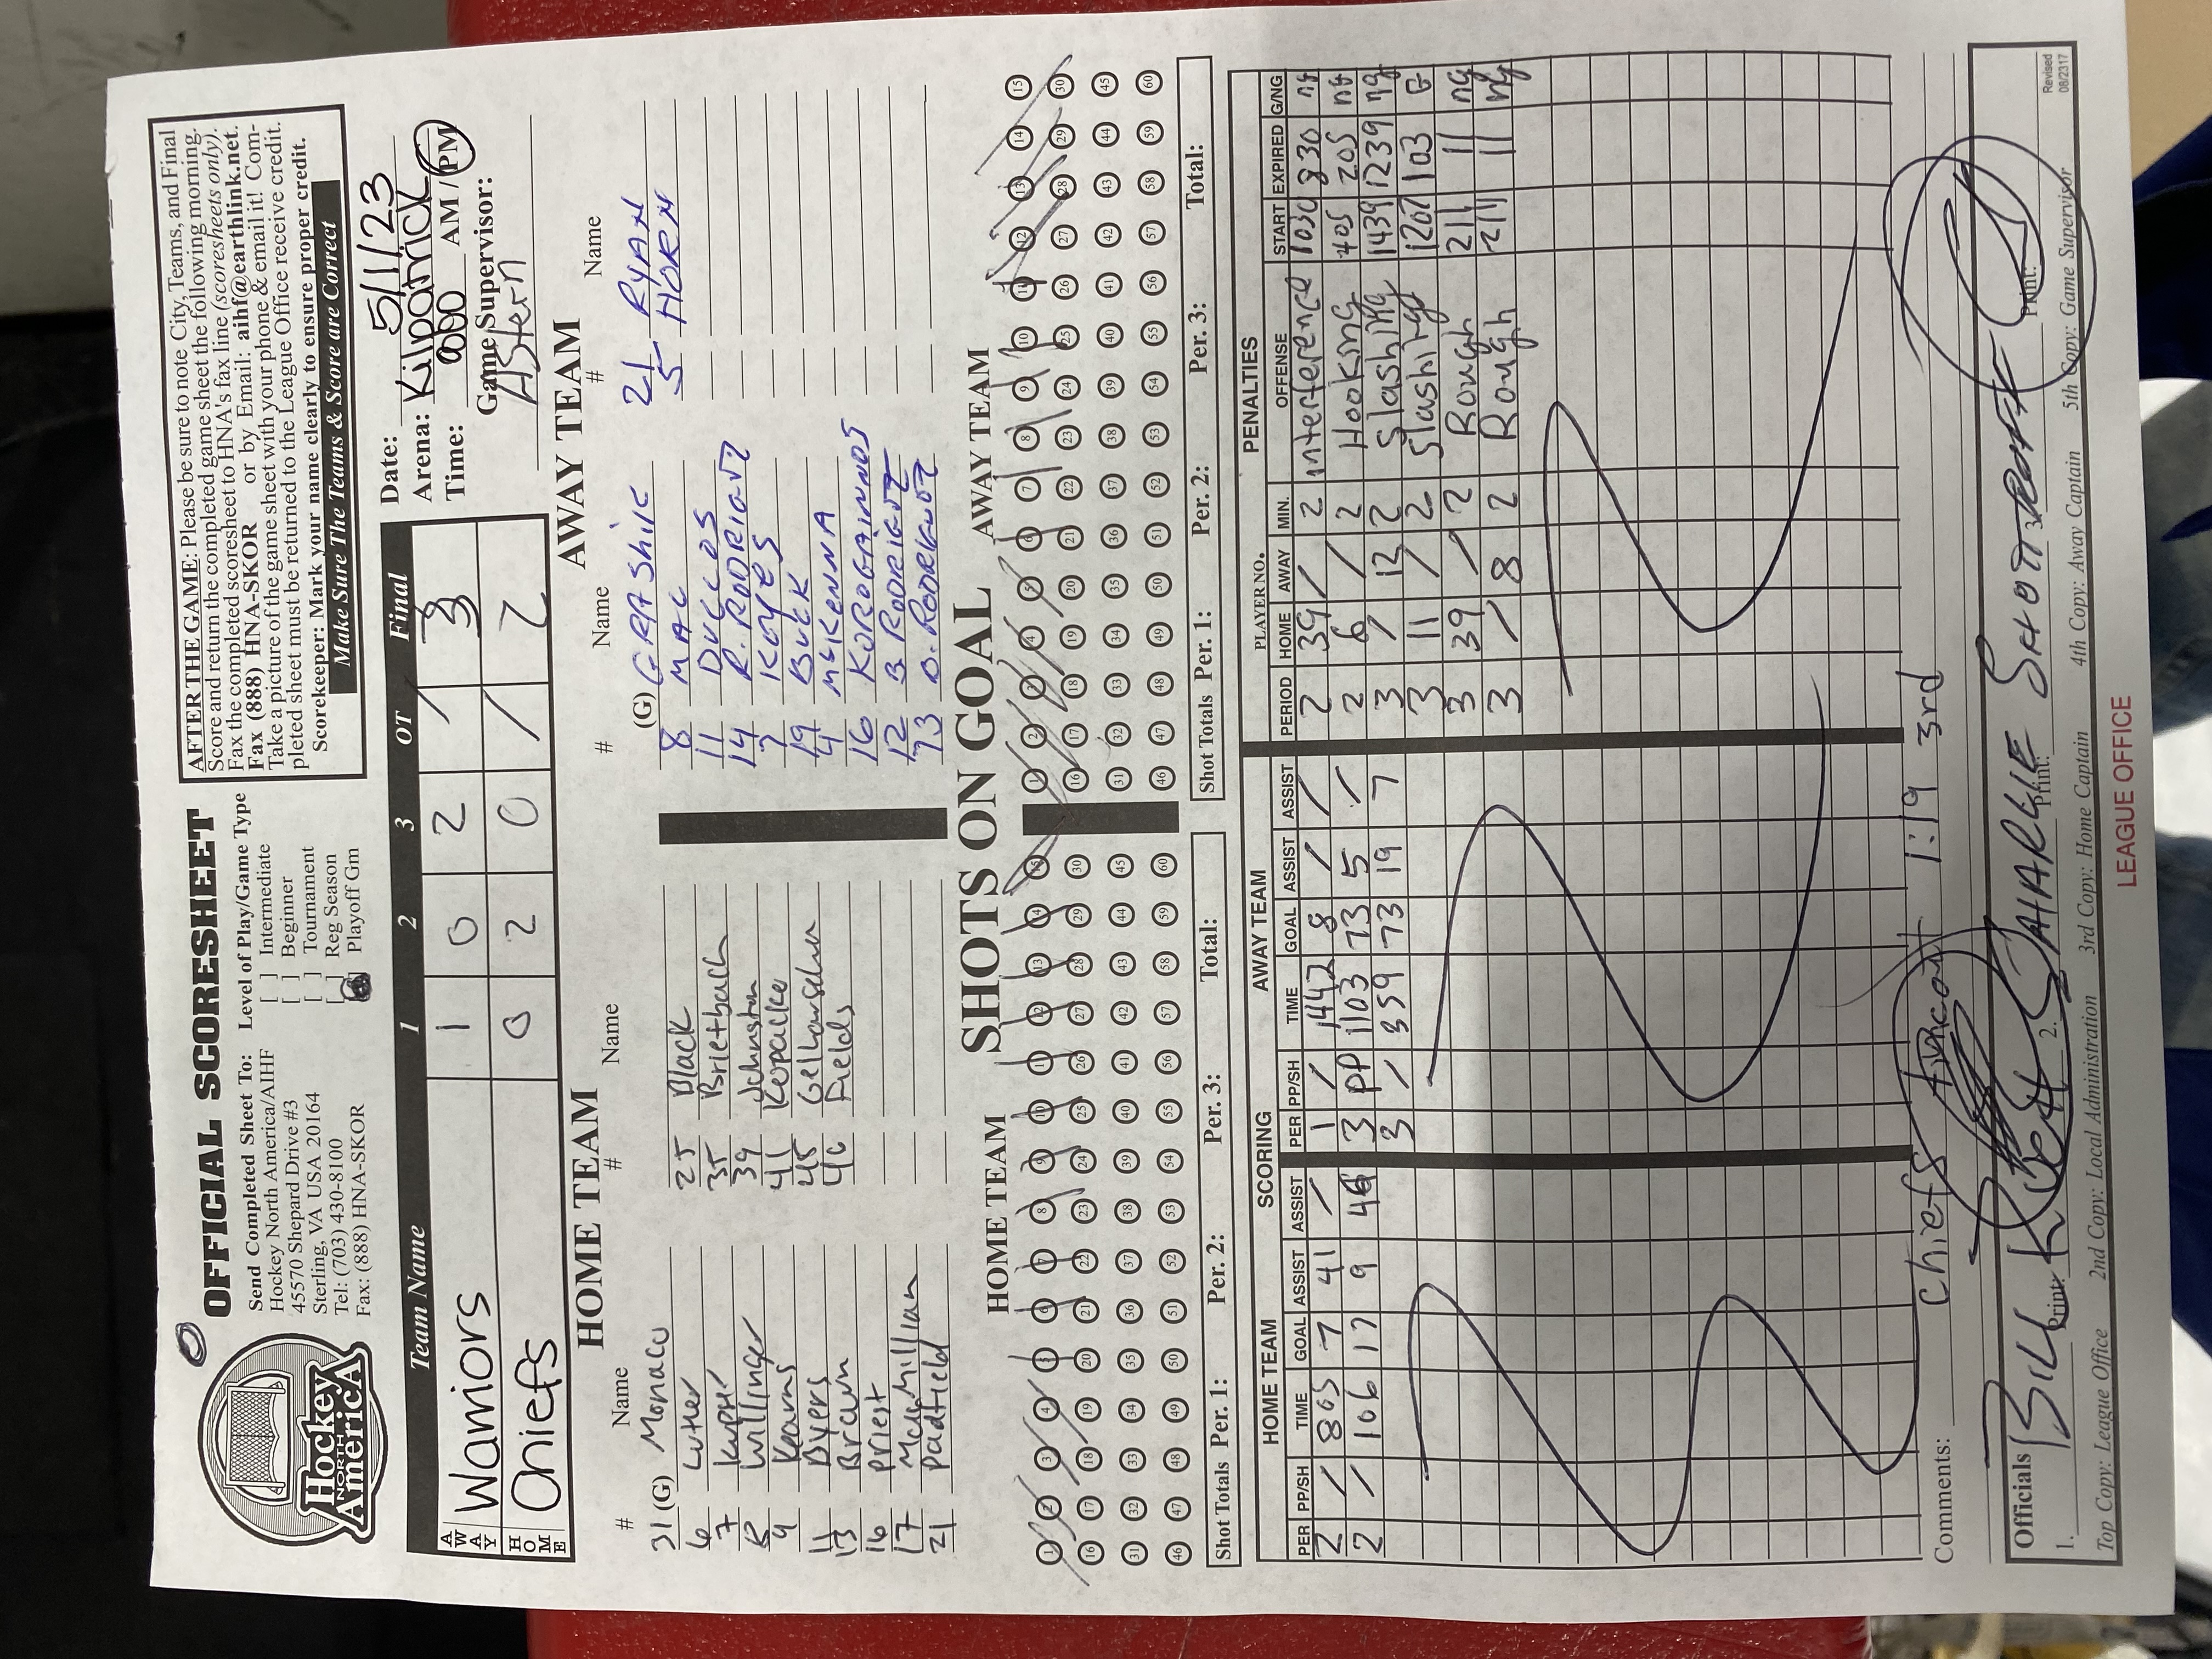 OFFICIAL SCORESHEET
Hockey
NORTH
America
Send Completed Sheet To:
Hockey North America/AIHF
45570 Shepard Drive #3
Sterling, VA USA 20164
Tel: (703) 430-8100
Fax: (888) HNA-SKOR
Level of Play/Game Type
[ ] Intermediate
[ ] Beginner
[ ] Tournament
[ ] Reg Season
Playoff Gm
AFTER THE GAME: Please be sure to note City, Teams, and Final
Score and return the completed game sheet the following morning.
Fax the completed scoresheet to HNA's fax line (scoresheets only).
Fax (888) HNA-SKOR or by Email: aihf@earthlink.net.
Take a picture of the game sheet with your phone & email it! Com-
pleted sheet must be returned to the League Office receive credit.
Scorekeeper: Mark your name clearly to ensure proper credit.
Make Sure The Teams & Score are Correct
Team Name 1 2 3 OT Final
AWAY Warriors 1 0 2 / 3
HOME Chiefs 0 2 0 / 2
Date: 5/1/23
Arena: Kilpatrick
Time: 900 AM / PM
Game Supervisor:
AStern
HOME TEAM
# Name # Name
31 (G) Monaco 25 Black
6 Luther 35 Brietbach
7 39 Johnston
Willinger 41 Kopacko
9 Kearns 45
11 Byers 46 Fields
13 Brown
16 Priest
17 McMillian
21 Padfield
AWAY TEAM
# Name # Name
(G) GRASHIK 21 RYAN
8 MAC 5 HORN
11 DUCLOS
14 R. RODRIGUEZ
7 KOYES
19 BUCK
4 McKENNA
16 KOROGAINNOS
12 B RODRIGUEZ
73 O. RODRIGUEZ
SHOTS ON GOAL
HOME TEAM AWAY TEAM
1 2 3 4 5 6 7 8 9 10 11 12 13 14 15 1 2 3 4 5 6 7 8 9 10 11 12 13 14 15
16 17 18 19 20 21 22 23 24 25 26 27 28 29 30 16 17 18 19 20 21 22 23 24 25 26 27 28 29 30
31 32 33 34 35 36 37 38 39 40 41 42 43 44 45 31 32 33 34 35 36 37 38 39 40 41 42 43 44 45
46 47 48 49 50 51 52 53 54 55 56 57 58 59 60 46 47 48 49 50 51 52 53 54 55 56 57 58 59 60
Shot Totals Per. 1: Per. 2: Per. 3: Total: Shot Totals Per. 1: Per. 2: Per. 3: Total:
SCORING
HOME TEAM
PER PP/SH TIME GOAL ASSIST ASSIST
2 / 805 7 41 /
2 / 106 17 9 46
AWAY TEAM
PER PP/SH TIME GOAL ASSIST ASSIST
1 / 1442 8 / /
3 PP 1103 73 5 /
3 / 359 73 19 7
PENALTIES
PLAYER NO.
PERIOD HOME AWAY MIN. OFFENSE START EXPIRED G/NG
2 39 / 2 interference 1030 830 ng
2 6 / 2 Hooking 405 205 ng
3 / 12 2 Slashing 1439 1239 ng
3 11 / 2 Slashing 1207 1103 G
3 39 / 2 Rough 211 11 ng
3 / 8 2 Rough 211 11 ng
Comments: Chiefs 1:19 3rd
Officials
1. Bill 2. CHARLIE 3.
Print: Print: Print:
Top Copy: League Office 2nd Copy: Local Administration 3rd Copy: Home Captain 4th Copy: Away Captain 5th Copy: Game Supervisor
Revised
08/2317
LEAGUE OFFICE